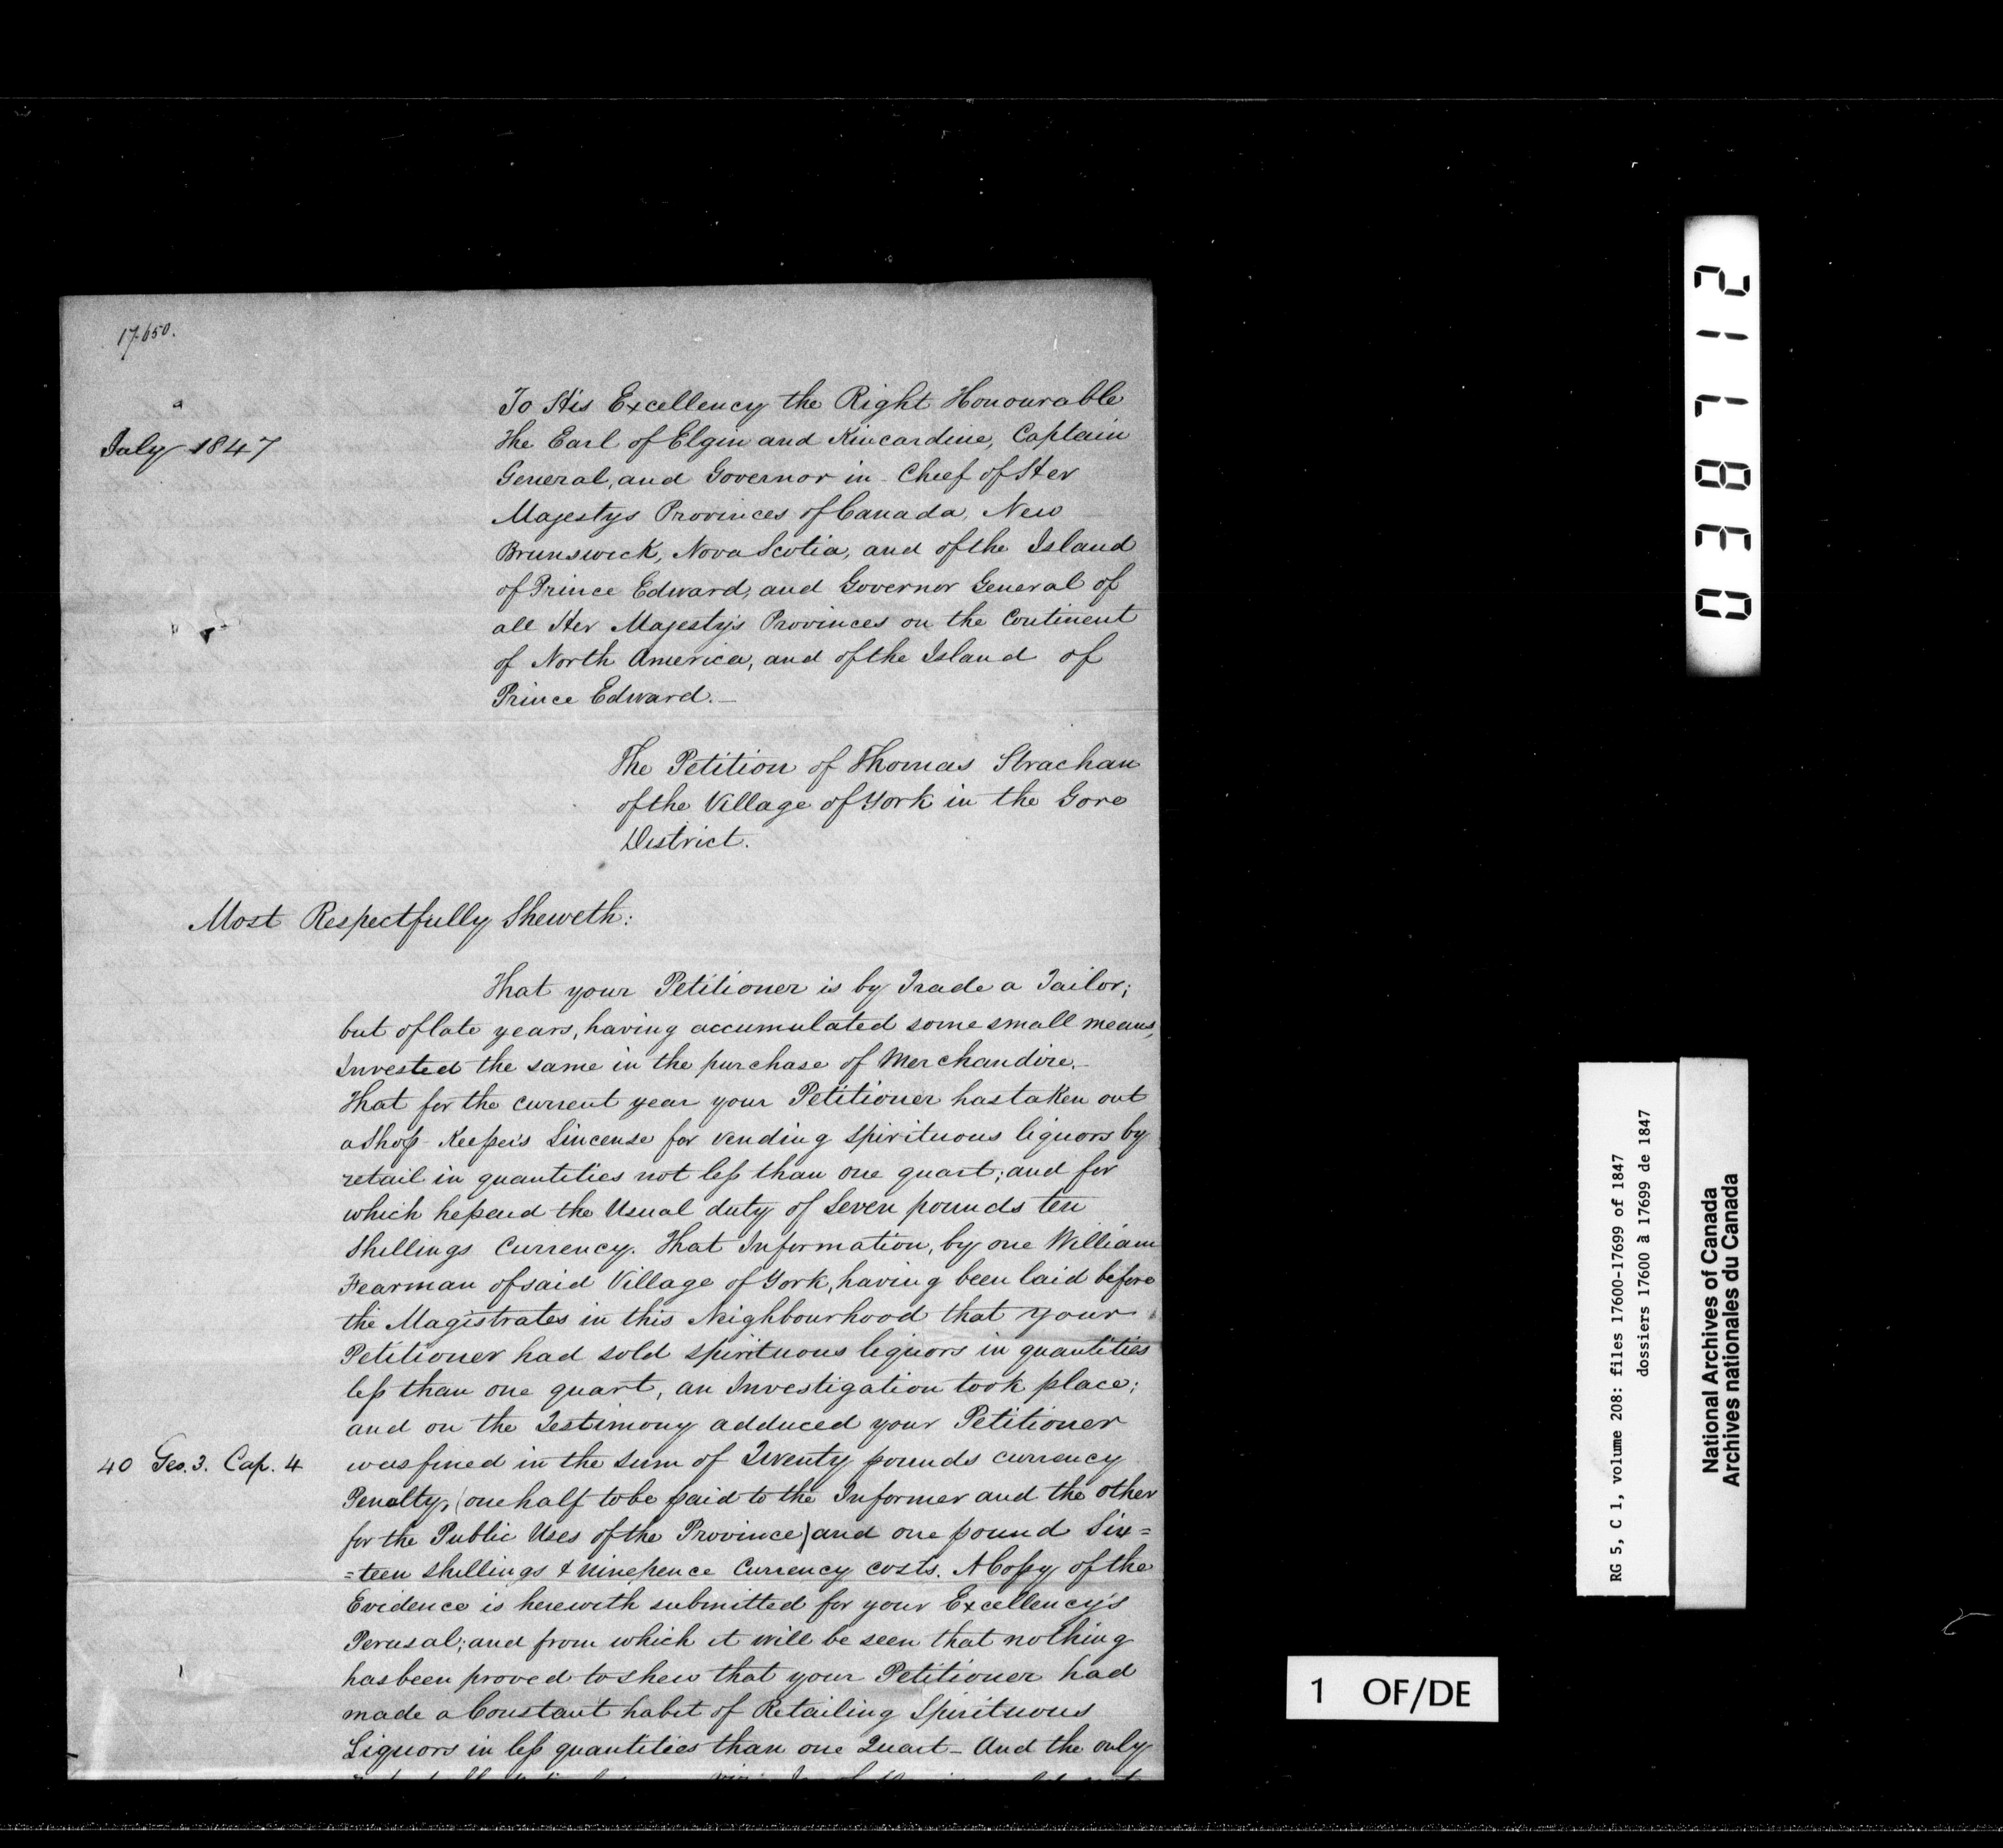 17.650.
July 1847
To His Excellency the Right Honourable
the Earl of Elgin and Kincardine, Captain
General, and Governor in Chief of Her
Majestys Provinces of Canada, New
Brunswick, Nova Scotia, and of the Island
of Prince Edward, and Governor General of
all Her Majesty's Provinces on the Continent
of North America, and of the Island of
Prince Edward.—
The Petition of Thomas Strachan
of the Village of York in the Gore
District.
Most Respectfully Sheweth:
That your Petitioner is by Trade a Tailor;
but of late years, having accumulated some small means,
Invested the same in the purchase of Merchandize.—
That for the current year your Petitioner has taken out
a Shop-Keeper's Lincense for vending Spirituous liquors by
retail in quantities not less than one quart; and for
which he paid the Usual duty of Seven pounds ten
Shillings Currency. That Information, by one William
Fearman of said Village of York, having been laid before
the Magistrates in this Neighbourhood that your
Petitioner had sold spirituous liquors in quantities
less than one quart, an Investigation took place;
and on the Testimony adduced your Petitioner
40 Geo. 3. Cap. 4 was fined in the Sum of Twenty pounds currency
Penalty, (one half to be paid to the Informer and the other
for the Public Uses of the Province) and one pound Six=
=teen shillings & ninepence Currency costs. A Copy of the
Evidence is herewith submitted for your Excellency's
Perusal; and from which it will be seen that nothing
has been proved to shew that your Petitioner had
made a Constant habit of Retailing Spirituous
Liquors in less quantities than one Quart— And the only
037812
1 2
RG 5, C 1, volume 208: files 17600-17699 of 1847
dossiers 17600 à 17699 de 1847
National Archives of Canada
Archives nationales du Canada
1 OF/DE